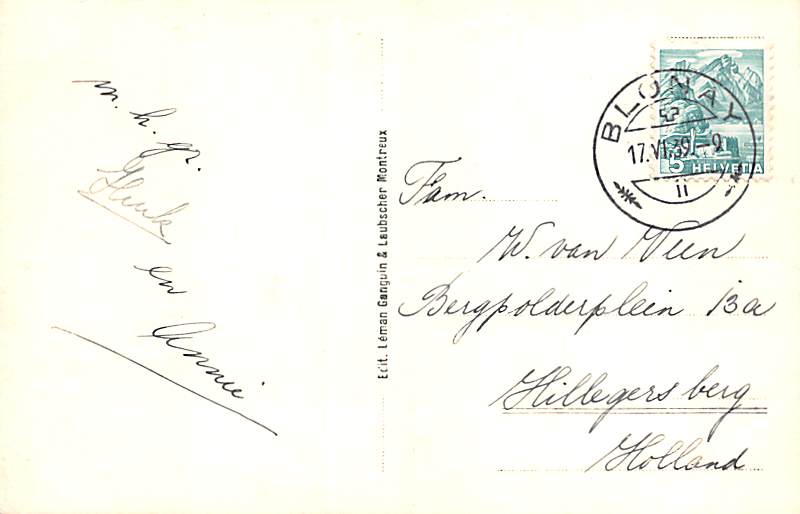 m. h. gr.
Henk
en
Annie
Edit. Léman Ganguin & Laubscher Montreux
BLONAY
17.VI.39.-9
5 HELVETIA
Fam.
W. van Veen
Bergpolderplein 13a
Hillegersberg
Holland